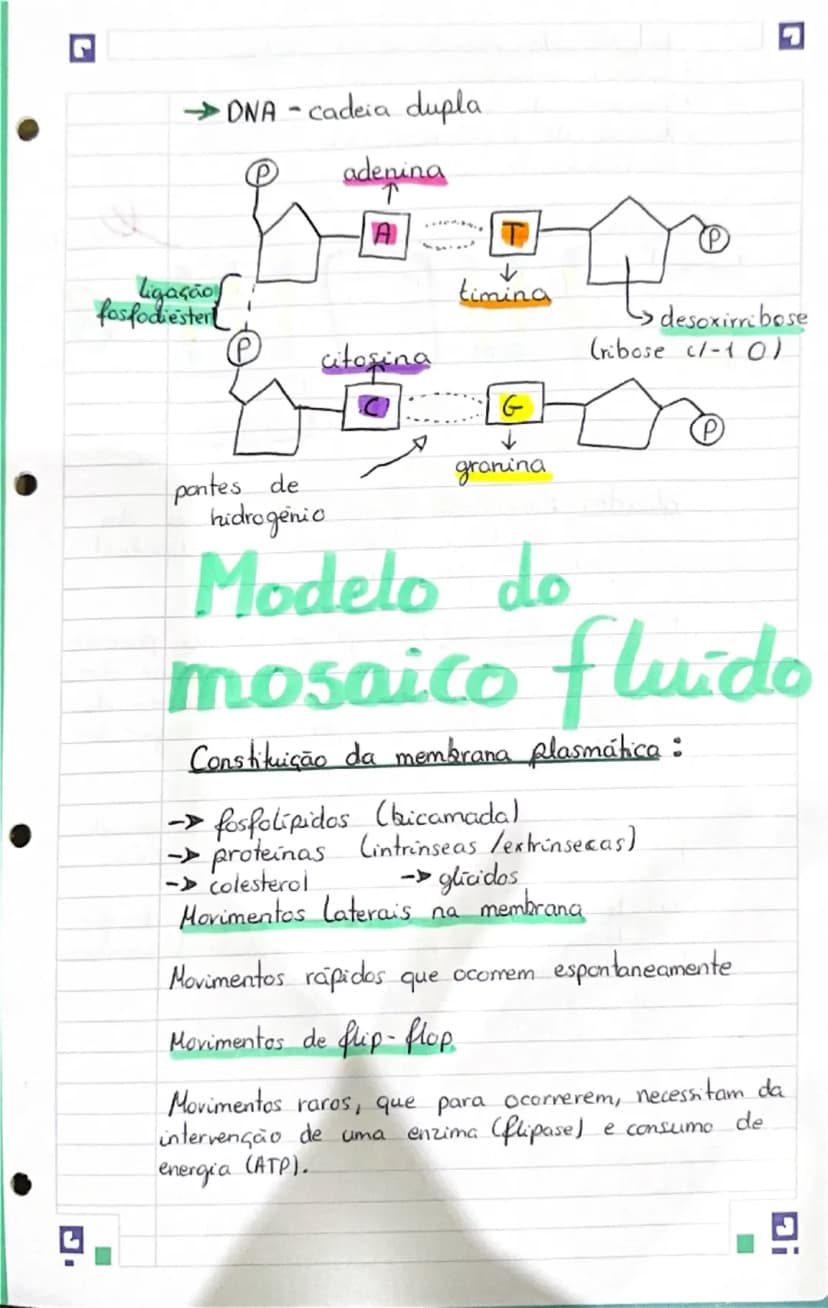 → DNA - cadeia dupla
P
adenina
A
T
P
timina
ligação
fosfodiéster
desoxirribose
(ribose c/-1 O)
P
citosina
C
G
P
granina
pontes de
hidrogénio
Modelo do
mosaico fluido
Constituição da membrana plasmática:
-> fosfolípidos (bicamada)
-> proteínas (intrínseas /extrínsecas)
-> colesterol -> glícidos
Movimentos laterais na membrana
Movimentos rápidos que ocorrem espontaneamente
Movimentos de flip-flop
Movimentos raros, que para ocorrerem, necessitam da
intervenção de uma enzima (flipase) e consumo de
energia (ATP).